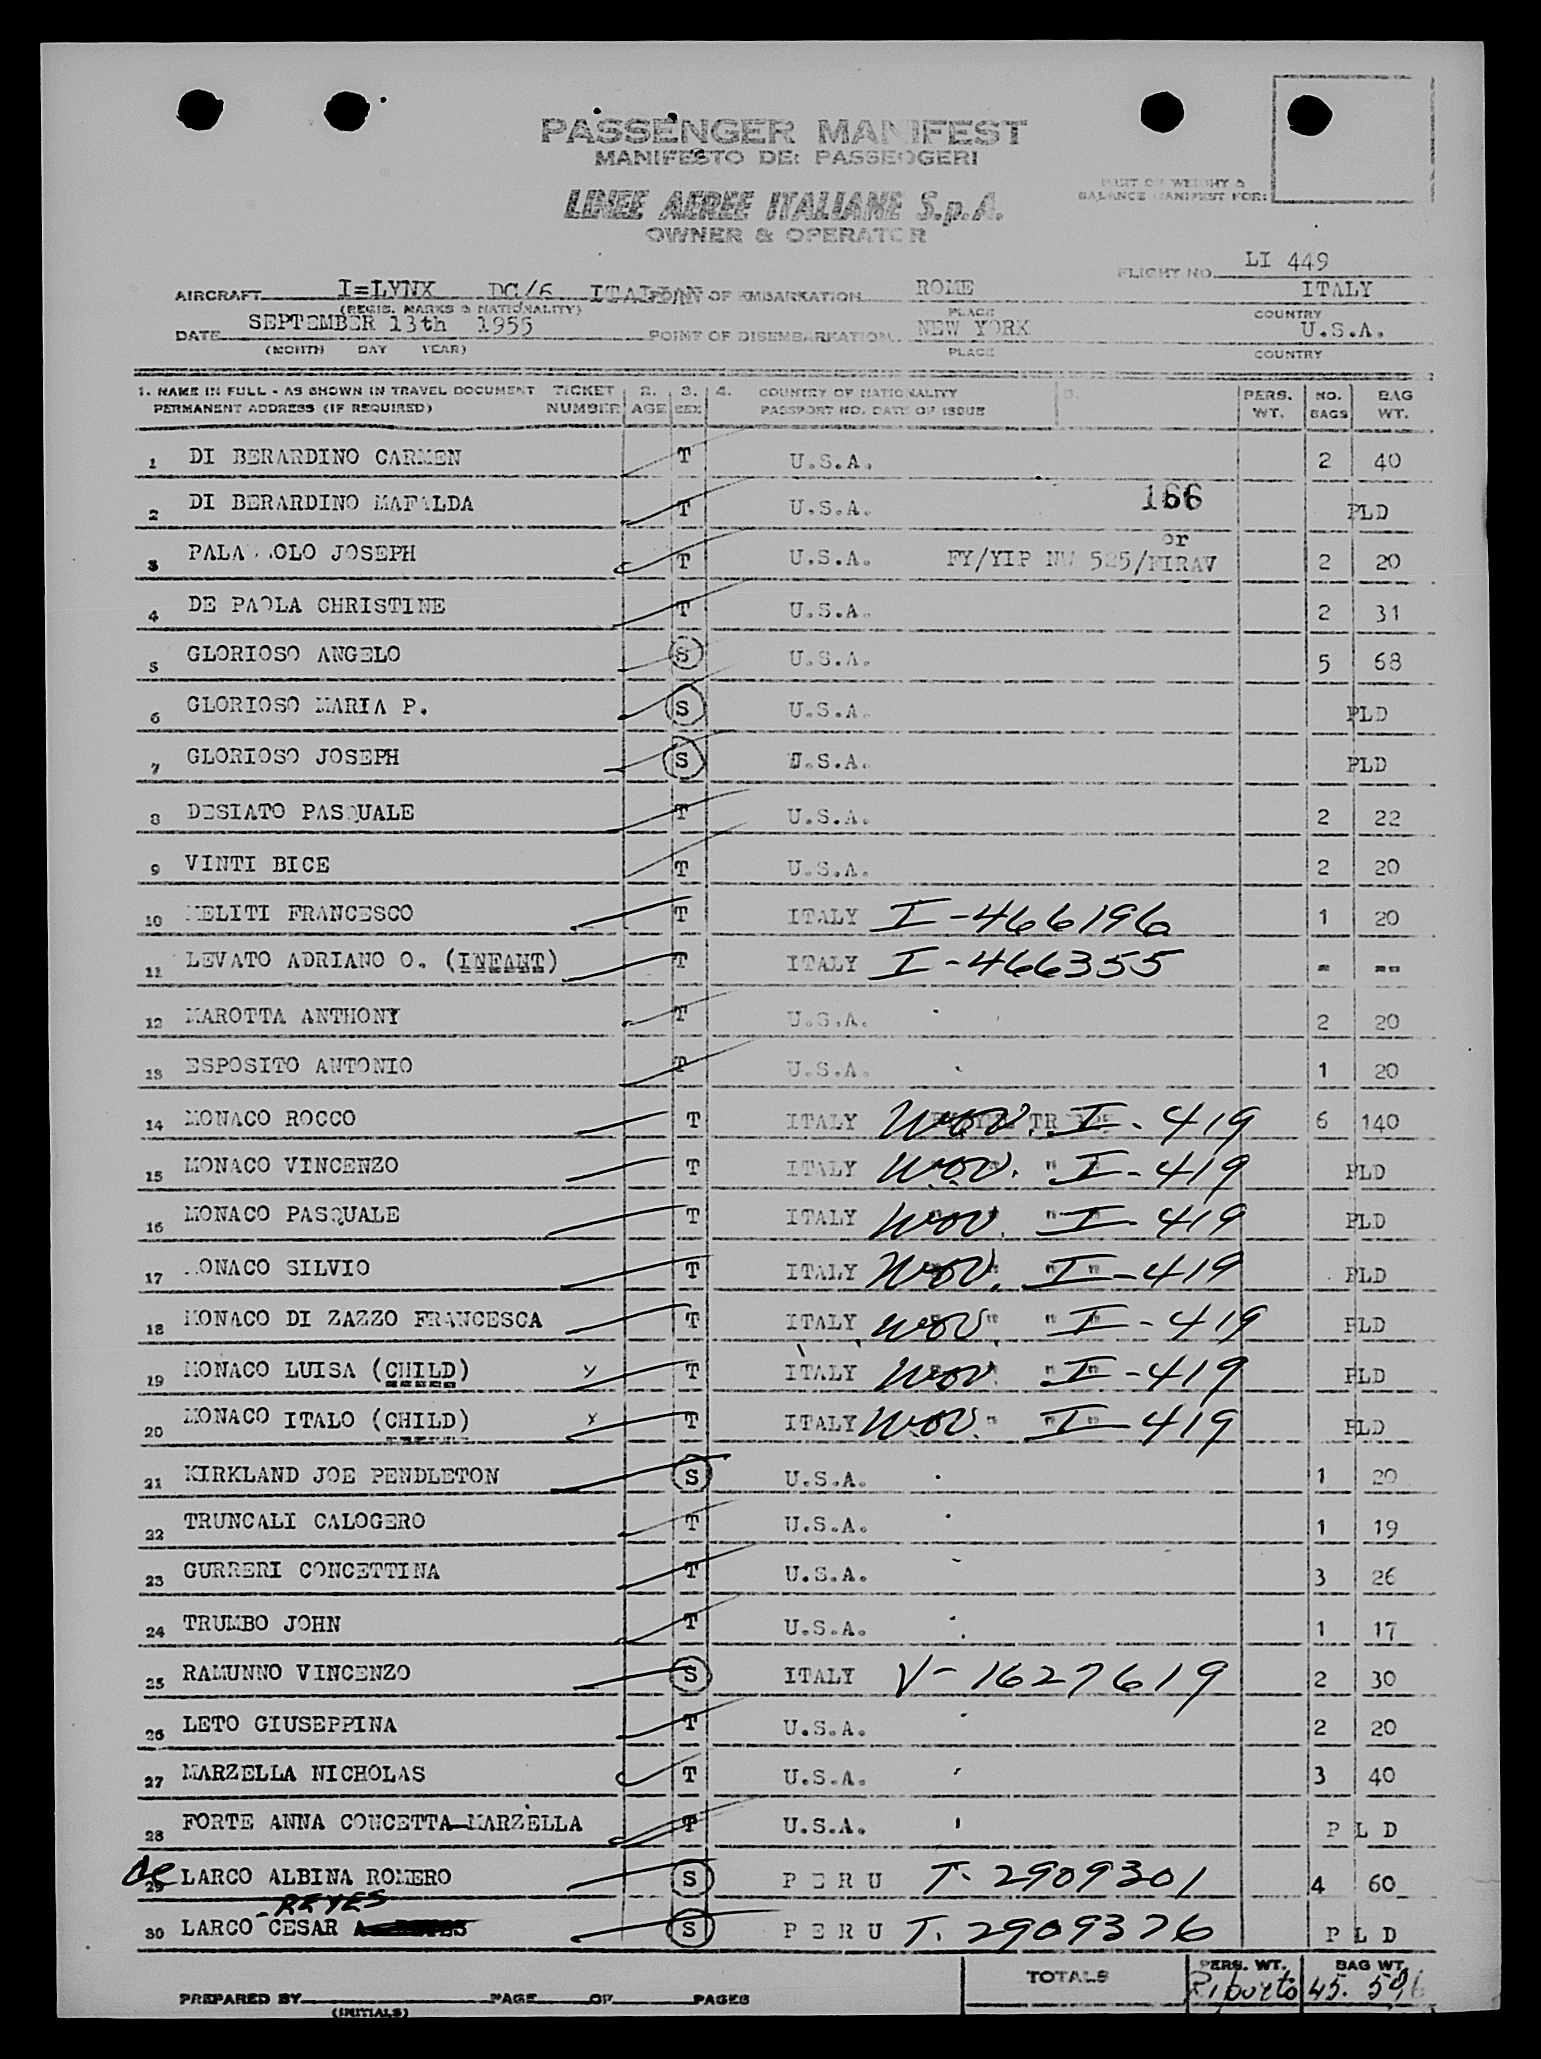 PASSENGER MANIFEST
MANIFESTO DEI PASSEGGERI
LINEE AEREE ITALIANE S.p.A.
OWNER & OPERATOR
PART OF WEIGHT &
BALANCE MANIFEST FOR:
FLIGHT NO. LI 449
AIRCRAFT I=LYNX DC/6 ITALIAN POINT OF EMBARKATION ROME ITALY
(REGIS. MARKS & NATIONALITY) PLACE COUNTRY
DATE SEPTEMBER 13th 1955 POINT OF DISEMBARKATION NEW YORK U.S.A.
(MONTH DAY YEAR) PLACE COUNTRY
1. NAME IN FULL - AS SHOWN IN TRAVEL DOCUMENT TICKET 2. 3. 4. COUNTRY OF NATIONALITY 5. PERS. NO. BAG
PERMANENT ADDRESS (IF REQUIRED) NUMBER AGE SEX PASSPORT NO. DATE OF ISSUE WT. BAGS WT.
1 DI BERARDINO CARMEN T U.S.A. 2 40
2 DI BERARDINO MAFALDA T U.S.A. 166 PLD
or
3 PALA OLO JOSEPH T U.S.A. FY/YIP NW 525/FIRAV 2 20
4 DE PAOLA CHRISTINE T U.S.A. 2 31
5 GLORIOSO ANGELO S U.S.A. 5 68
6 GLORIOSO MARIA P. S U.S.A. PLD
7 GLORIOSO JOSEPH S U.S.A. PLD
8 DESIATO PASQUALE T U.S.A. 2 22
9 VINTI BICE T U.S.A. 2 20
10 MELITI FRANCESCO T ITALY I-466196 1 20
11 LEVATO ADRIANO O. (INFANT) T ITALY I-466355 - --
12 MAROTTA ANTHONY T U.S.A. 2 20
13 ESPOSITO ANTONIO T U.S.A. 1 20
14 MONACO ROCCO T ITALY TR I-419 6 140
15 MONACO VINCENZO T ITALY " I-419 PLD
16 MONACO PASQUALE T ITALY " " I-419 PLD
17 MONACO SILVIO T ITALY " " I-419 PLD
18 MONACO DI ZAZZO FRANCESCA T ITALY " " I-419 PLD
19 MONACO LUISA (CHILD) x T ITALY " " I-419 PLD
20 MONACO ITALO (CHILD) x T ITALY " " I-419 PLD
21 KIRKLAND JOE PENDLETON S U.S.A. 1 20
22 TRUNCALI CALOGERO T U.S.A. 1 19
23 GURRERI CONCETTINA T U.S.A. 3 26
24 TRUMBO JOHN T U.S.A. 1 17
25 RAMUNNO VINCENZO S ITALY V-1627619 2 30
26 LETO GIUSEPPINA T U.S.A. 2 20
27 MARZELLA NICHOLAS T U.S.A. 3 40
28 FORTE ANNA CONCETTA MARZELLA T U.S.A. P L D
29 de LARCO ALBINA ROMERO S P E R U T-2909301 4 60
-REYES
30 LARCO CESAR S P E R U T. 2909376 P L D
TOTALS PERS. WT. BAG WT.
Riporto 45.
PREPARED BY PAGE OF PAGES
(INITIALS)